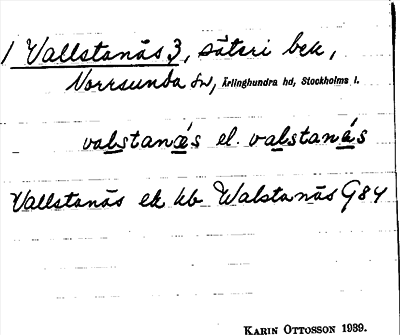 1 Vallstanäs 3, säteri bek,
Norrsunda sn, Ärlinghundra hd, Stockholms l.
valstanæ̀s el. valstaná̀s
Vallstanäs ek kb Walstanäs G84
KARIN OTTOSSON 1939.